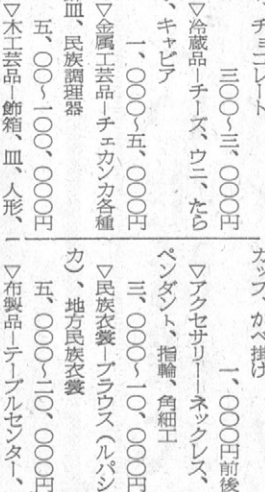 、チョコレート
三〇〇〜三、〇〇〇円
▽冷蔵品―チーズ、ウニ、たら
、キャビア
一、〇〇〇〜五、〇〇〇円
▽金属工芸品―チェカンカ各種
皿、民族調理器
五、〇〇〜一〇〇、〇〇〇円
▽木工芸品―飾箱、皿、人形、
カップ、かべ掛け
一、〇〇〇円前後
▽アクセサリー―ネックレス、
ペンダント、指輪、角細工
三、〇〇〇〜一〇、〇〇〇円
▽民族衣裳―ブラウス(ルパシ
カ)、地方民族衣裳
五、〇〇〇〜二〇、〇〇〇円
▽布製品―テーブルセンター、